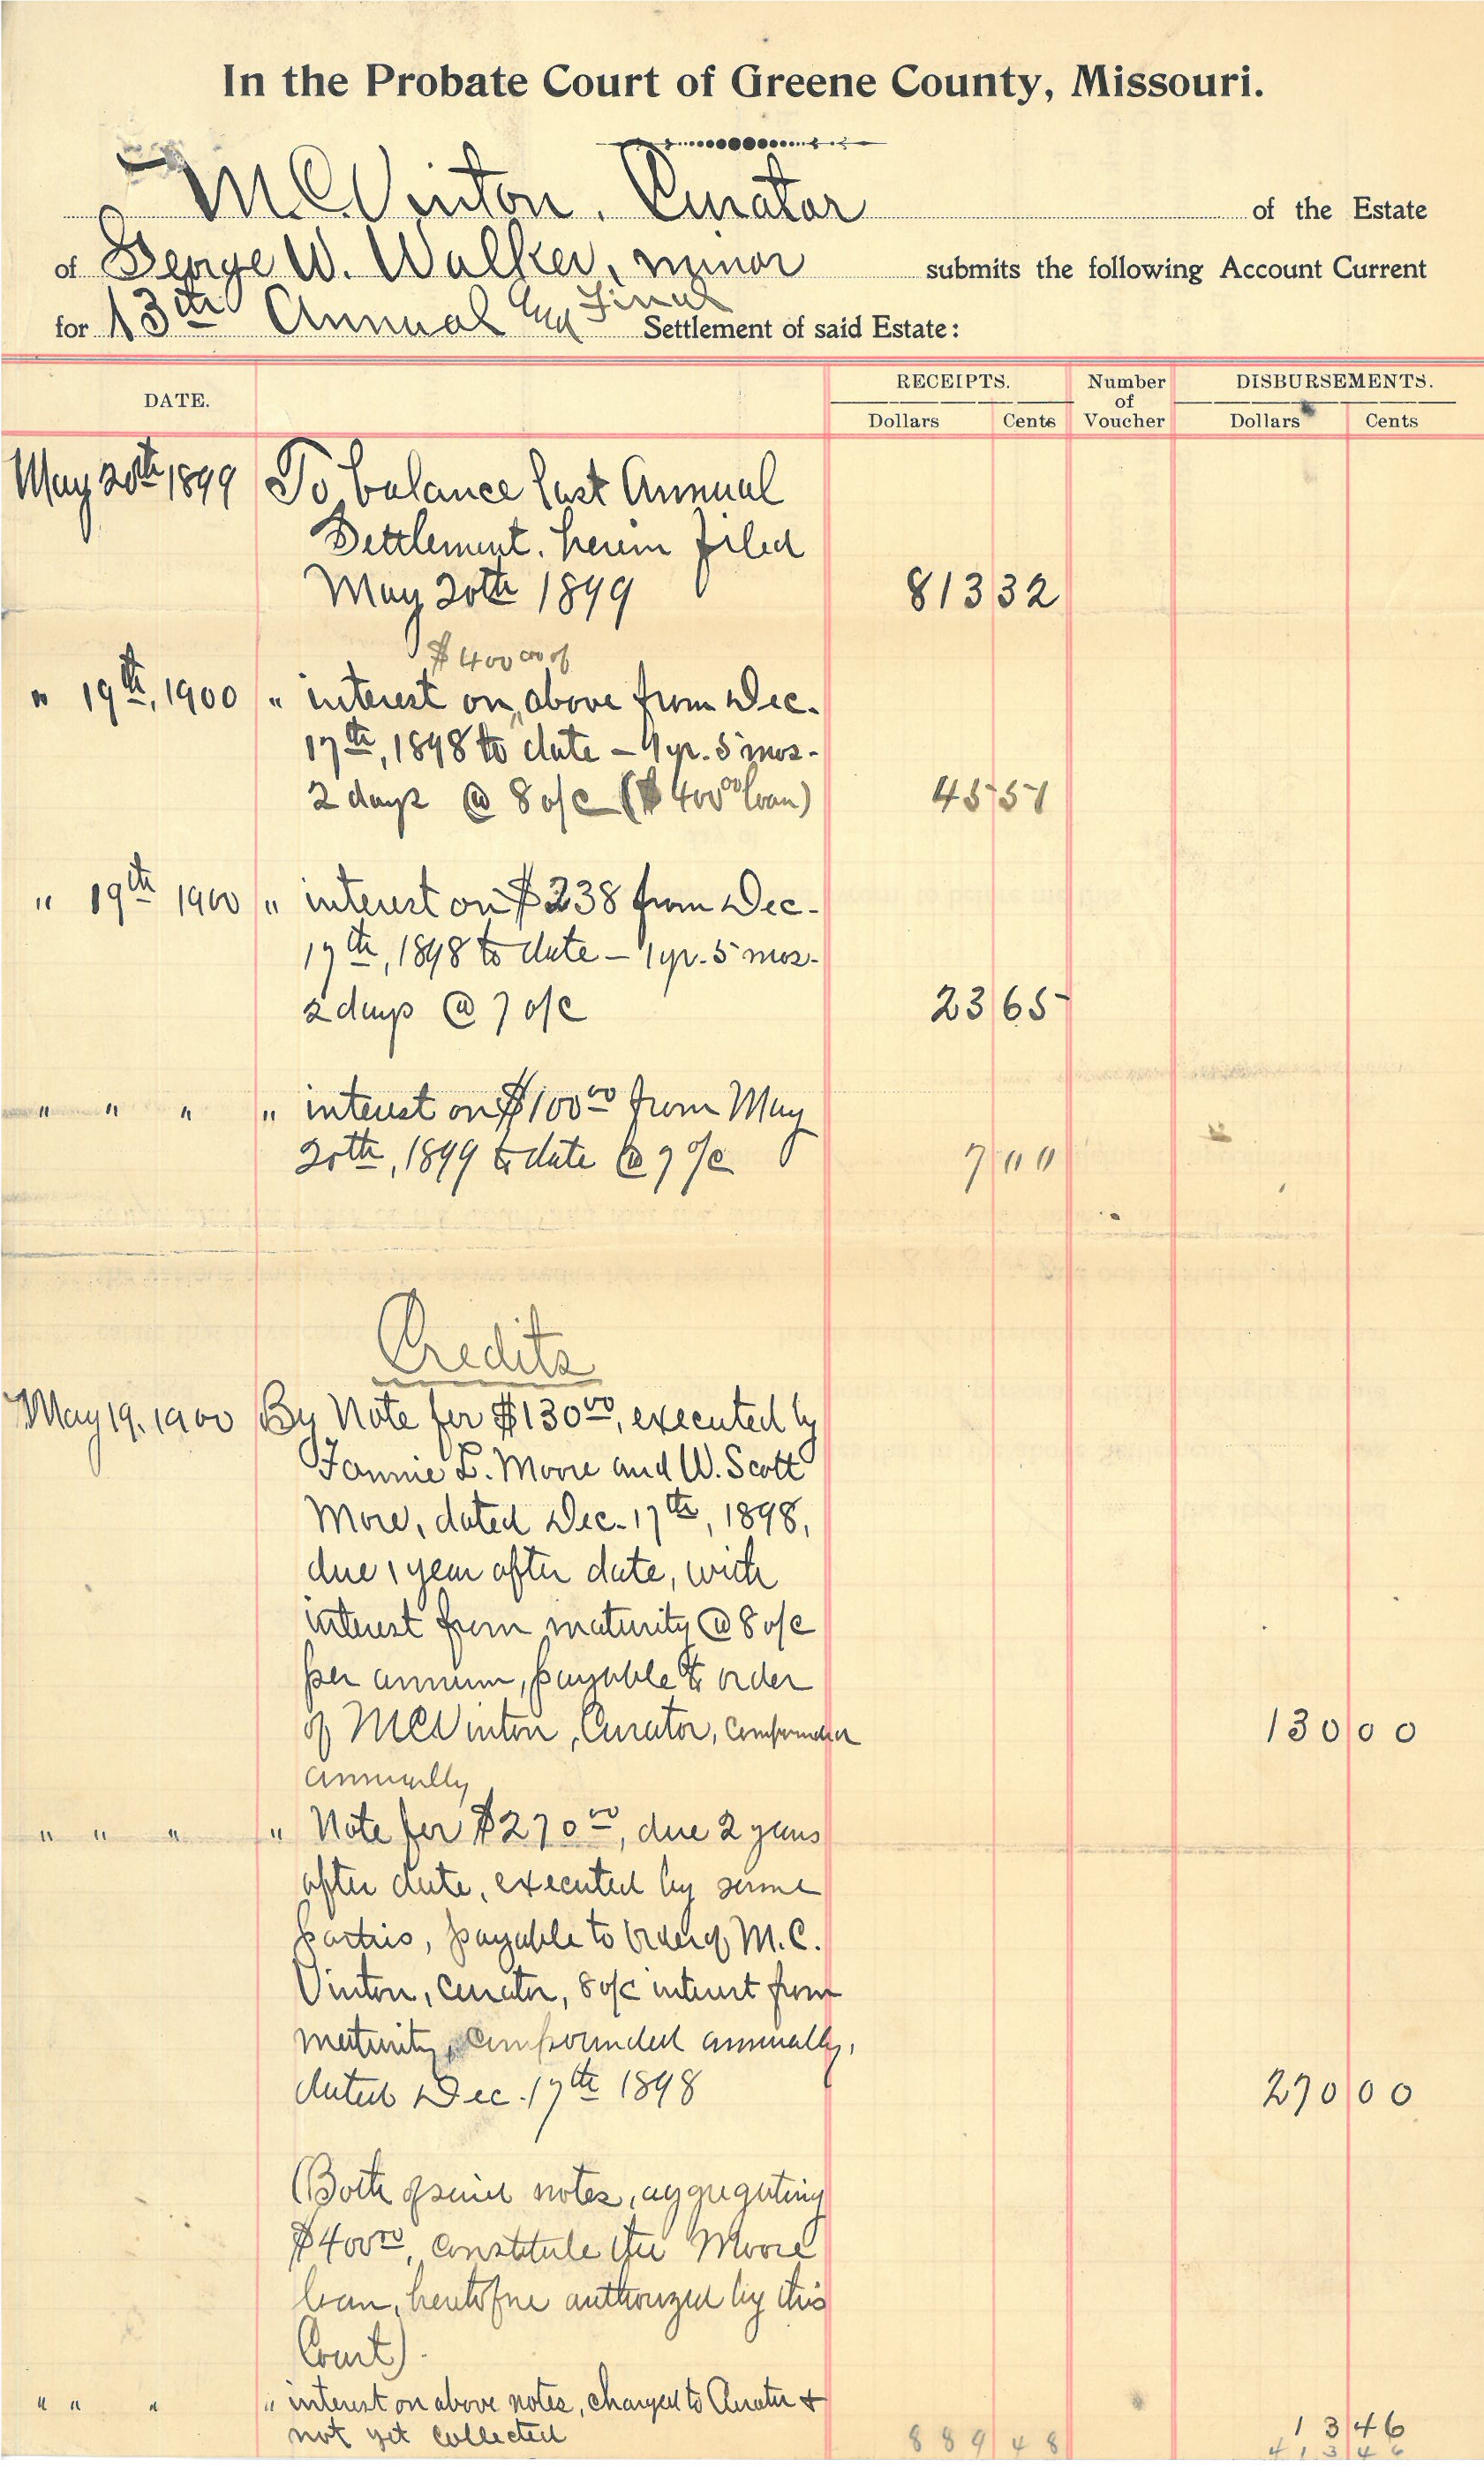 In the Probate Court of Greene County, Missouri.
M.C. Vinton, Curator of the Estate
of George W. Walker, minor submits the following Account Current
for 13th Annual and Final Settlement of said Estate:
DATE. RECEIPTS. Number of Voucher DISBURSEMENTS.
Dollars Cents Dollars Cents
May 20th 1899 To balance last Annual
Settlement, herein filed
May 20th 1899 813 32
$400 00 of
" 19th, 1900 " interest on above from Dec.
17th, 1898 to date - 1 yr. 5 mos.
2 days @ 8 o/c ($400 00 loan) 45 51
" 19th 1900 " interest on $238 from Dec.
17th, 1898 to date - 1 yr. 5 mos.
2 days @ 7 o/c 23 65
" " " " interest on $100 00 from May
20th, 1899 to date @ 7 o/c 7 00
Credits
May 19, 1900 By Note for $130 00, executed by
Fannie L. Moore and W. Scott
More, dated Dec. 17th, 1898,
due 1 year after date, with
interest from maturity @ 8 o/c
per annum, payable to order
of M C Vinton, Curator, compounded 130 00
annually
" " " " Note for $270 00, due 2 years
after date, executed by same
parties, payable to order of M. C.
Vinton, Curator, 8 o/c interest from
maturity, compounded annually,
dated Dec. 17th 1898 270 00
(Both of said notes, aggregating
$400 00, constitute the Moore
loan, heretofore authorized by this
Court).
" " " " interest on above notes, charged to Curator +
not yet collected 13 46
889 48 413 46